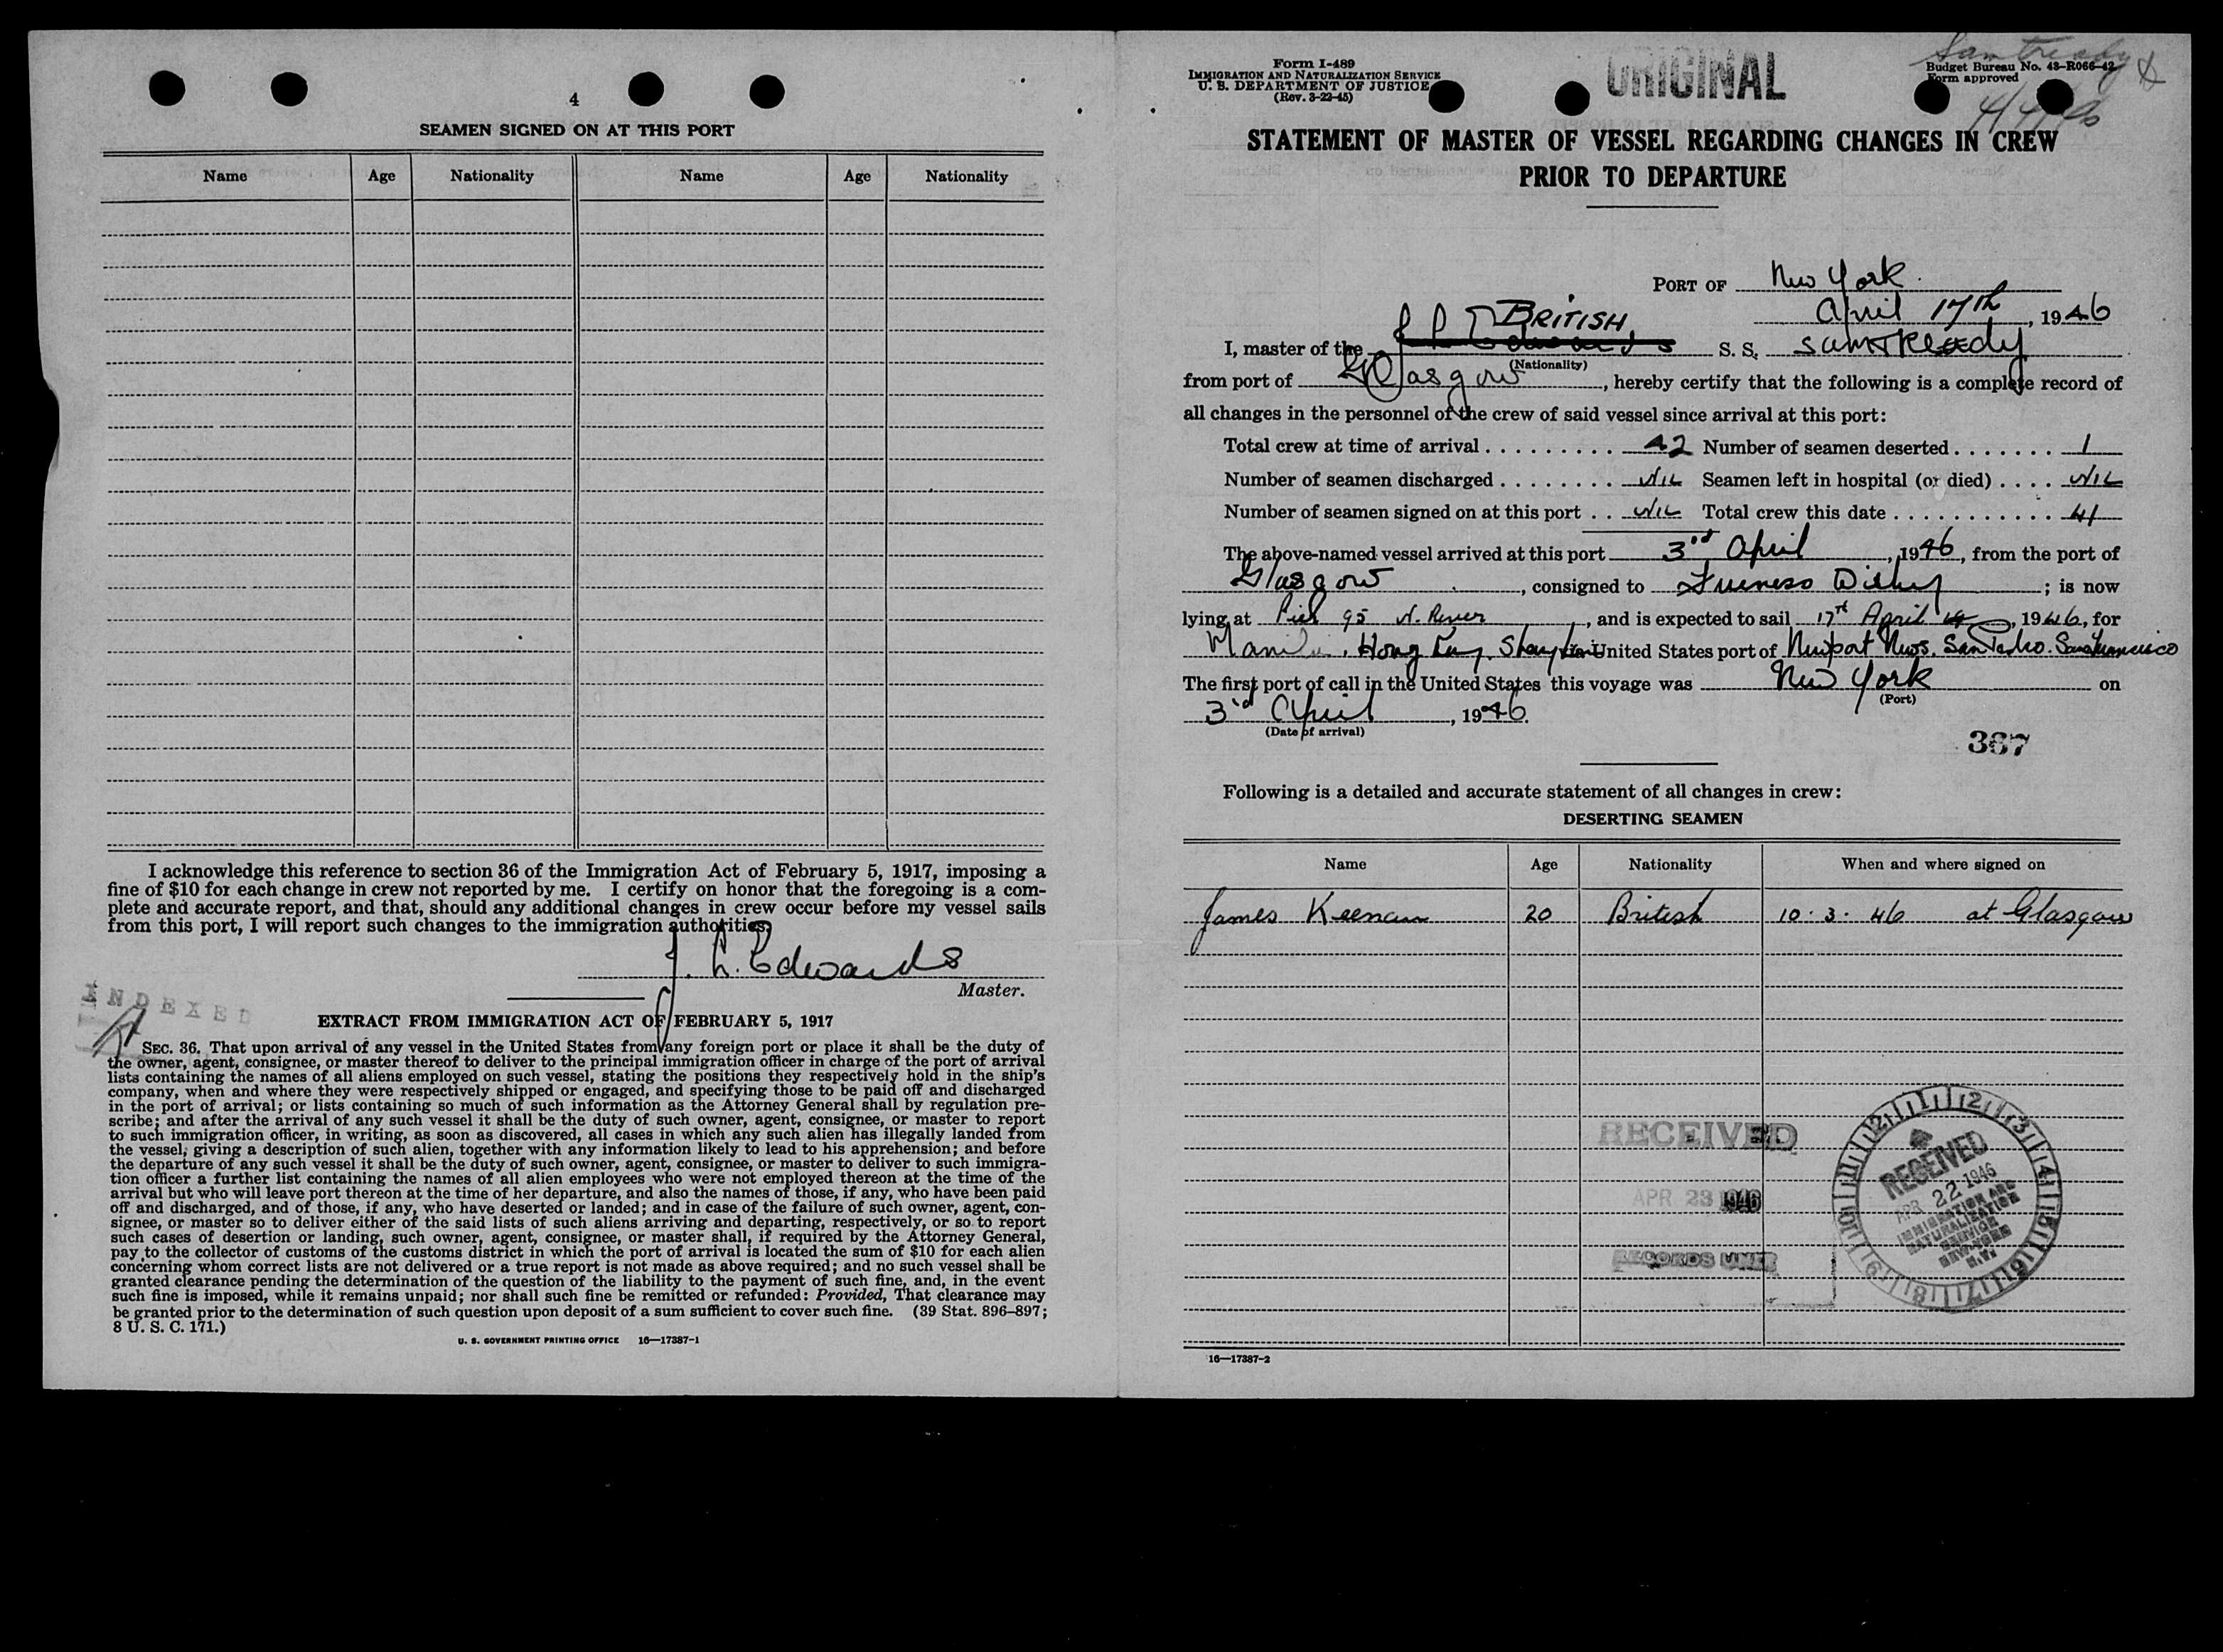 4
SEAMEN SIGNED ON AT THIS PORT
Name Age Nationality Name Age Nationality
I acknowledge this reference to section 36 of the Immigration Act of February 5, 1917, imposing a
fine of $10 for each change in crew not reported by me. I certify on honor that the foregoing is a com-
plete and accurate report, and that, should any additional changes in crew occur before my vessel sails
from this port, I will report such changes to the immigration authorities.
J. L. Edwards
Master.
INDEXED
EXTRACT FROM IMMIGRATION ACT OF FEBRUARY 5, 1917
SEC. 36. That upon arrival of any vessel in the United States from any foreign port or place it shall be the duty of
the owner, agent, consignee, or master thereof to deliver to the principal immigration officer in charge of the port of arrival
lists containing the names of all aliens employed on such vessel, stating the positions they respectively hold in the ship's
company, when and where they were respectively shipped or engaged, and specifying those to be paid off and discharged
in the port of arrival; or lists containing so much of such information as the Attorney General shall by regulation pre-
scribe; and after the arrival of any such vessel it shall be the duty of such owner, agent, consignee, or master to report
to such immigration officer, in writing, as soon as discovered, all cases in which any such alien has illegally landed from
the vessel, giving a description of such alien, together with any information likely to lead to his apprehension; and before
the departure of any such vessel it shall be the duty of such owner, agent, consignee, or master to deliver to such immigra-
tion officer a further list containing the names of all alien employees who were not employed thereon at the time of the
arrival but who will leave port thereon at the time of her departure, and also the names of those, if any, who have been paid
off and discharged, and of those, if any, who have deserted or landed; and in case of the failure of such owner, agent, con-
signee, or master so to deliver either of the said lists of such aliens arriving and departing, respectively, or so to report
such cases of desertion or landing, such owner, agent, consignee, or master shall, if required by the Attorney General,
pay to the collector of customs of the customs district in which the port of arrival is located the sum of $10 for each alien
concerning whom correct lists are not delivered or a true report is not made as above required; and no such vessel shall be
granted clearance pending the determination of the question of the liability to the payment of such fine, and, in the event
such fine is imposed, while it remains unpaid; nor shall such fine be remitted or refunded: Provided, That clearance may
be granted prior to the determination of such question upon deposit of a sum sufficient to cover such fine. (39 Stat. 896–897;
8 U. S. C. 171.)
U. S. GOVERNMENT PRINTING OFFICE 16—17387-1
Form I-489
IMMIGRATION AND NATURALIZATION SERVICE
U. S. DEPARTMENT OF JUSTICE
(Rev. 3-22-45)
ORIGINAL
Budget Bureau No. 43-R066-42
Form approved
STATEMENT OF MASTER OF VESSEL REGARDING CHANGES IN CREW
PRIOR TO DEPARTURE
PORT OF New York
April 17th, 1946
I, master of the BRITISH S. S. Samtredy
(Nationality)
from port of Glasgow, hereby certify that the following is a complete record of
all changes in the personnel of the crew of said vessel since arrival at this port:
Total crew at time of arrival . . . . . . . . . 42 Number of seamen deserted . . . . . . . 1
Number of seamen discharged . . . . . . . . NIL Seamen left in hospital (or died) . . . . NIL
Number of seamen signed on at this port . . NIL Total crew this date . . . . . . . . . . . . 41
The above-named vessel arrived at this port 3rd April, 1946, from the port of
Glasgow, consigned to Furness Withy; is now
lying at Pier 95 N. River, and is expected to sail 17th April, 1946, for
Manila, Hong Kong, Shanghai via United States port of Newport News. San Pedro. San Francisco
The first port of call in the United States this voyage was New York on
(Port)
3rd April, 1946.
(Date of arrival)
367
Following is a detailed and accurate statement of all changes in crew:
DESERTING SEAMEN
Name Age Nationality When and where signed on
James Keenan 20 British 10. 3. 46 at Glasgow
RECEIVED
APR 23 1946
RECORDS UNIT
1 2 3 4 5 6 7 8 9 10 11 12
RECEIVED
APR 22 1946
IMMIGRATION AND
NATURALIZATION
SERVICE
N.Y.
16—17387-2